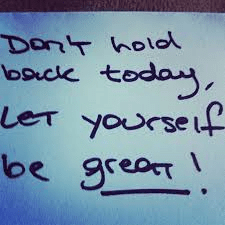 Don't hold
back today,
LET yourself
be great!